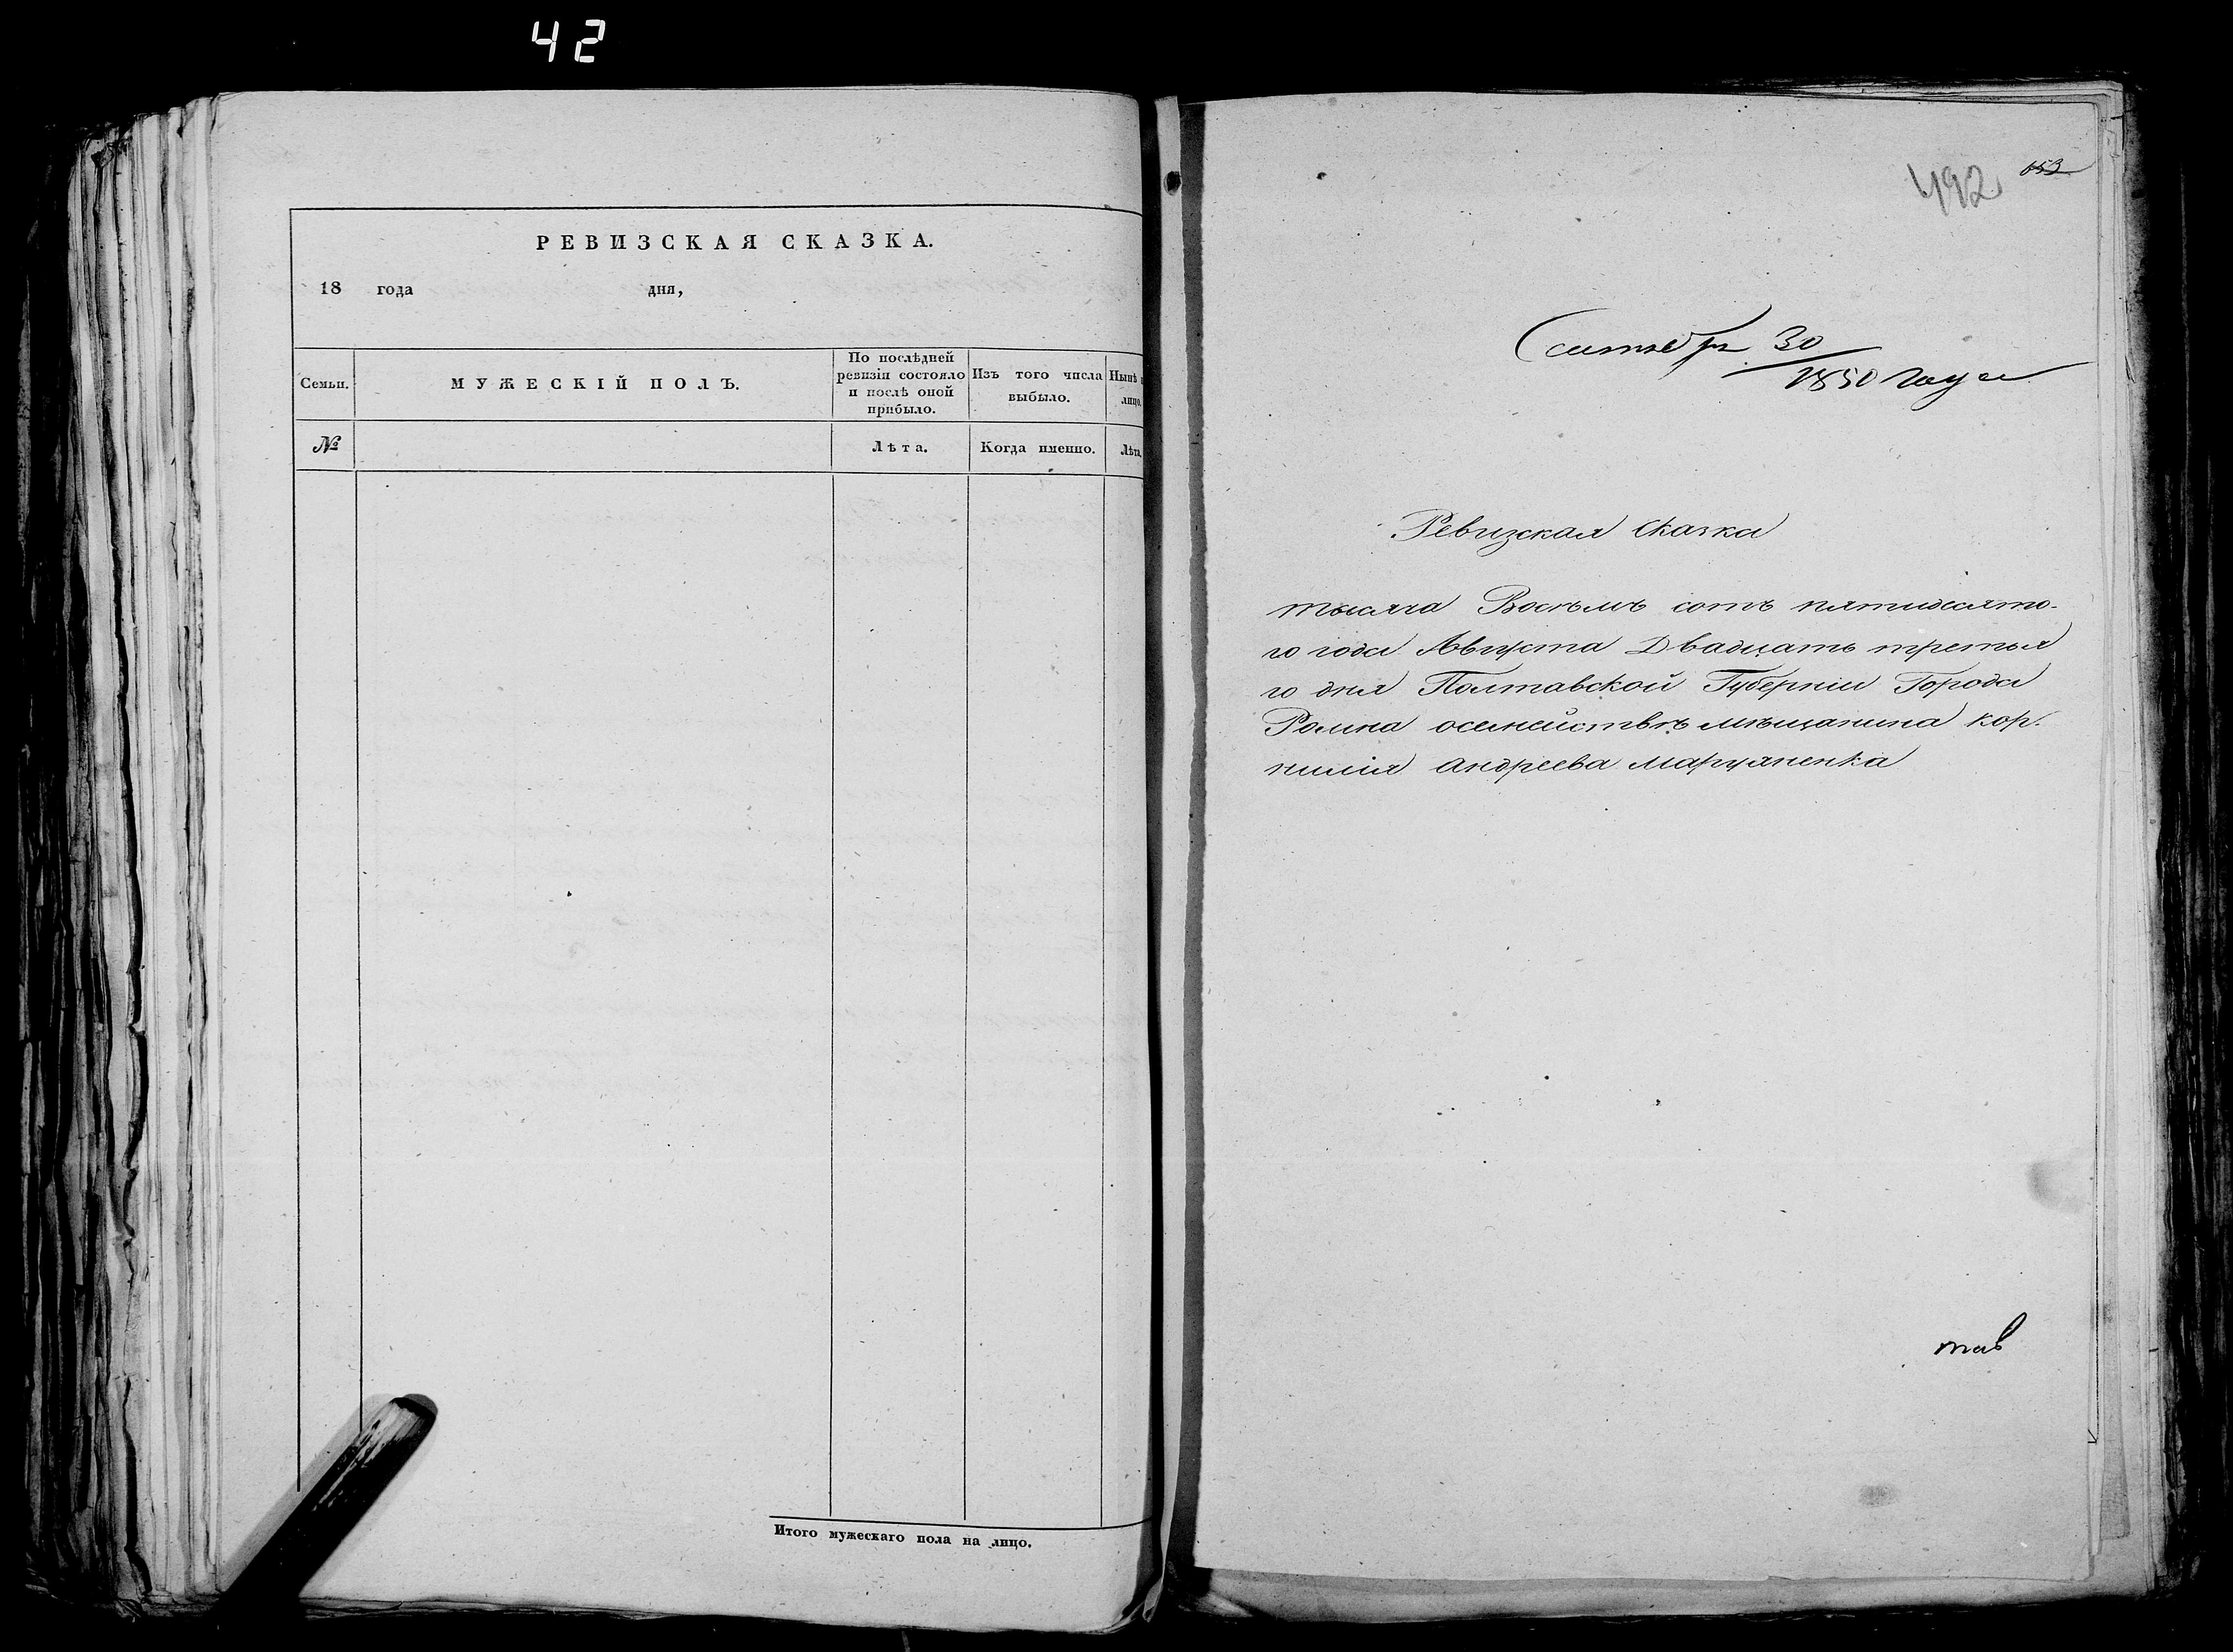 42
РЕВИЗСКАЯ СКАЗКА.
18 года дня,
Семьи.
МУЖЕСКІЙ ПОЛЪ.
По послѣдней
ревизіи состояло
и послѣ оной
прибыло.
Изъ того числа
выбыло.
Нынѣ
лицо.
№
Лѣта.
Когда именно.
Лѣта.
Итого мужескаго пола на лицо.
492
653
30
1850 года
Ревизская Сказка
тысяча Восѣмъ сотъ пятидесято-
го года Августа Двадцать третья
го дня Полтавской Губерніи Города
Ромна осемействѣ мѣщанина кор.
нилія андреева